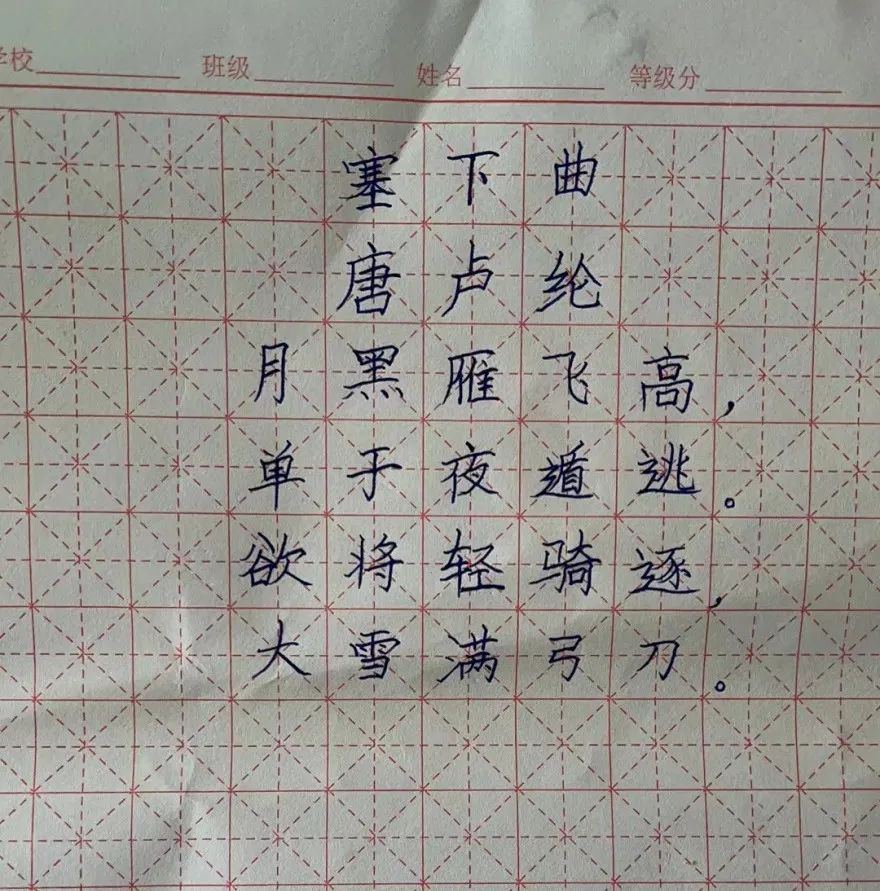 学校 班级 姓名 等级分
塞下曲
唐卢纶
月黑雁飞高，
单于夜遁逃。
欲将轻骑逐，
大雪满弓刀。